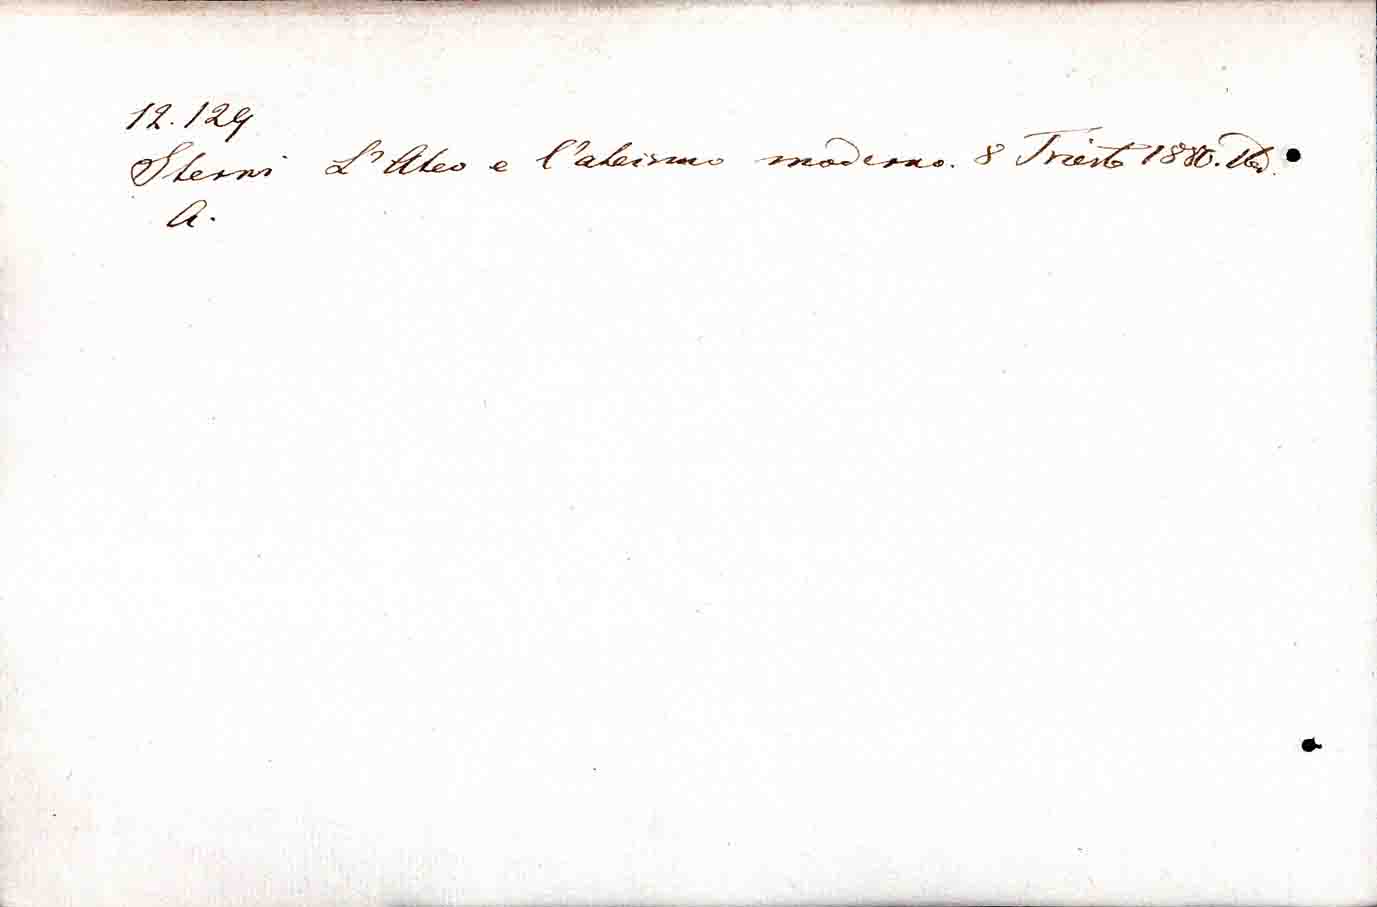 12.129
Sterni L'Ateo e l'ateismo moderno. 8 Trieste 1880.
A.